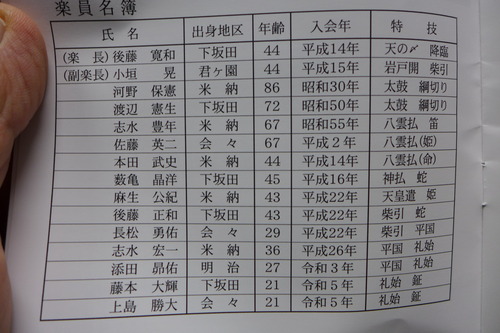 楽員名簿
氏名 出身地区 年齢 入会年 特技
(楽 長) 後藤 寛和 下坂田 44 平成14年 天の〆 降臨
(副楽長) 小垣 晃 君ヶ園 44 平成15年 岩戸開 柴引
河野 保憲 米納 86 昭和30年 太鼓 綱切り
渡辺 憲生 下坂田 72 昭和50年 太鼓 綱切り
志水 豊年 米納 67 昭和55年 八雲払 笛
佐藤 英二 会々 67 平成2年 八雲払(姫)
本田 武史 米納 44 平成14年 八雲払(命)
薮亀 晶洋 下坂田 45 平成16年 神払 蛇
麻生 公紀 米納 43 平成22年 天皇遣 姫
後藤 正和 下坂田 43 平成22年 柴引 蛇
長松 勇佑 会々 29 平成22年 柴引 平国
志水 宏一 米納 36 平成26年 平国 礼始
添田 昴佑 明治 27 令和3年 平国 礼始
藤本 大輝 下坂田 21 令和5年 礼始 鉦
上島 勝大 会々 21 令和5年 礼始 鉦